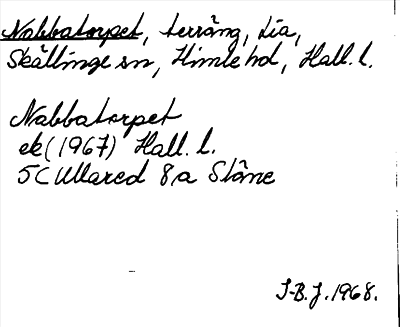 Nabbatorpet, terräng, Lia,
Skällinge sn, Himle hd, Hall. l.
Nabbatorpet
ek (1967) Hall. l.
5C Ullared 8a Ståne
J-B.J. 1968.